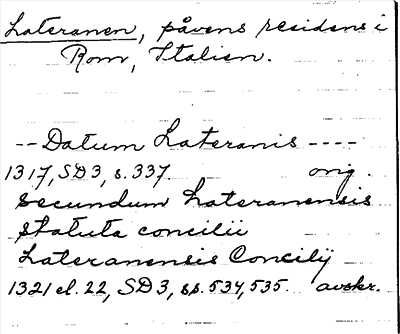 Lateranen, påvens residens i
Rom, Italien.
-- Datum Lateranis ----
1317, SD3, s. 337. orig.
secundum Lateranensis
statuta concilii
Lateransis Concilij
1321 el. 22, SD3, ss. 534, 535. avskr.